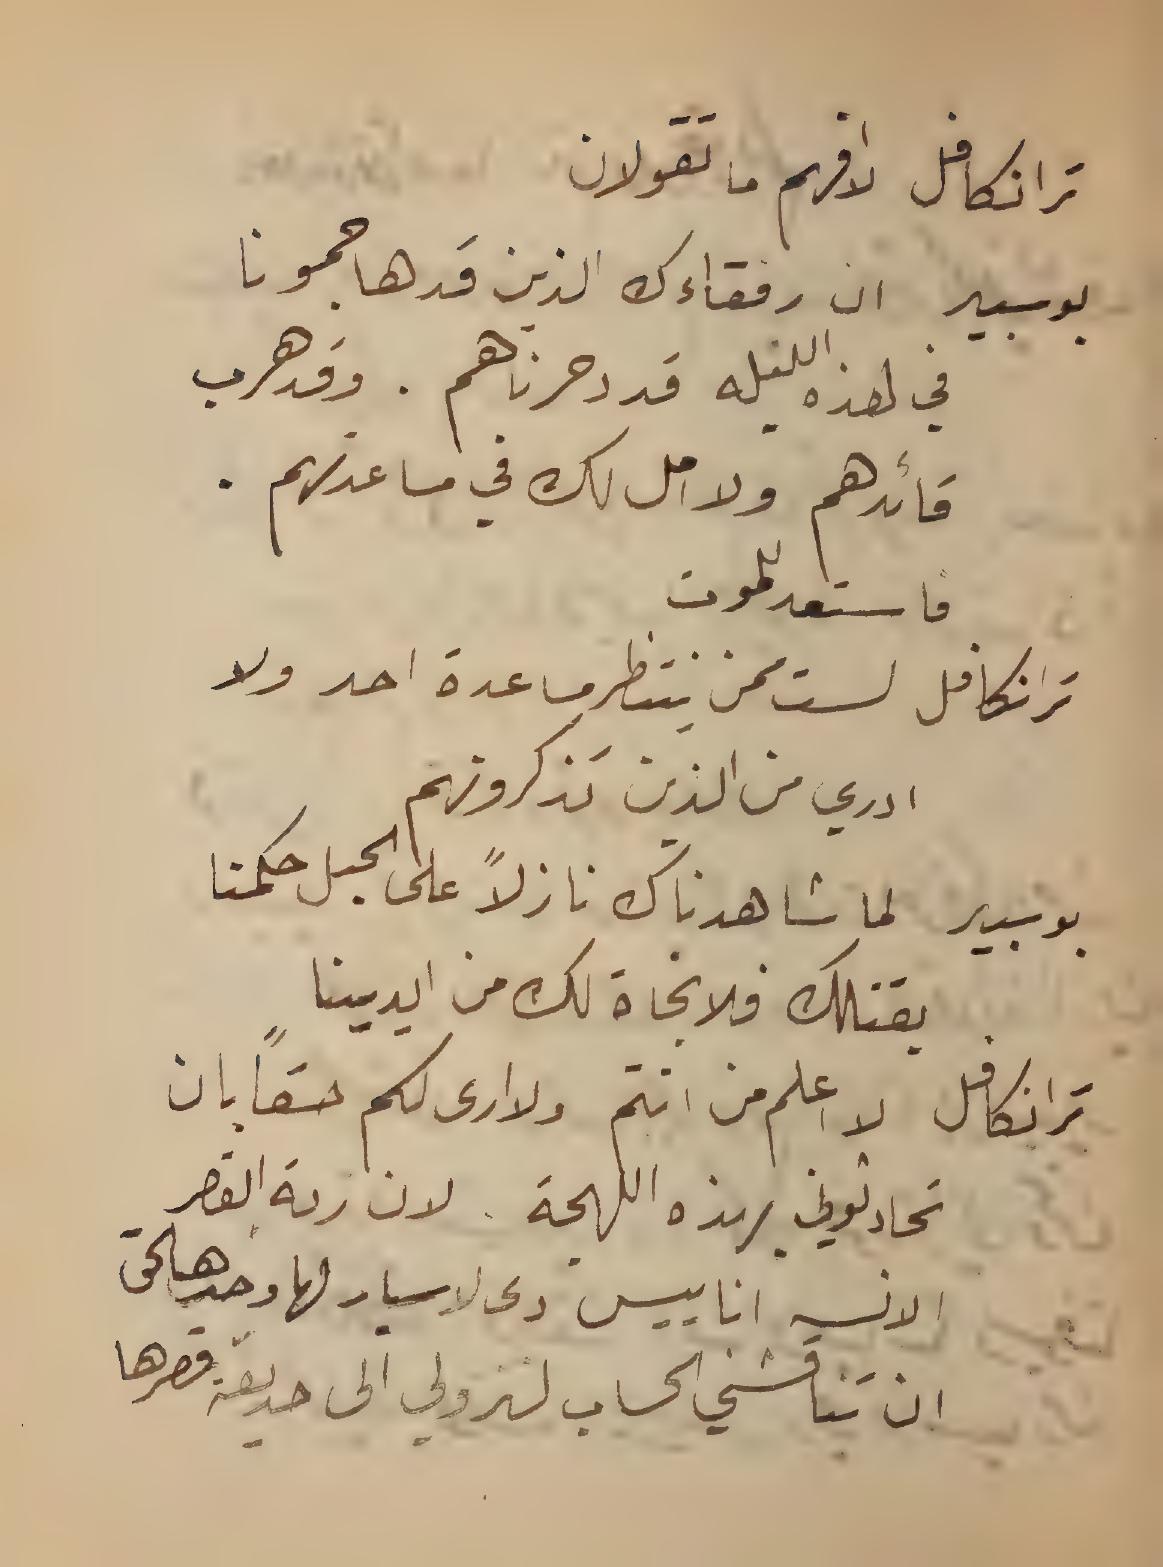 ترانكافل لا افهم ما تقولان
بوسبير ان رفقاءك الذين قد هاجمونا
في هذه الليله قد دحرناهم . وقد هرب
قائدهم ولا امل لك في مساعدتهم .
فاستعد للموت
ترانكافل لست ممن ينتظر مساعدة احد ولا
ادري من الذين تذكرونهم
بوسبير لما شاهدناك نازلاً على الحبل حكمنا
بقتلك فلا نجاة لك من ايدينا
ترانكافل لا اعلم من انتم ولا ارى لكم حقاً بان
تحادثوني بهذه اللهجة . لان ربة القصر
الانسه اناييس دى لاسيار لها وحدها الحق
ان تناقشني الحساب لنزولي الى حديقة قصرها